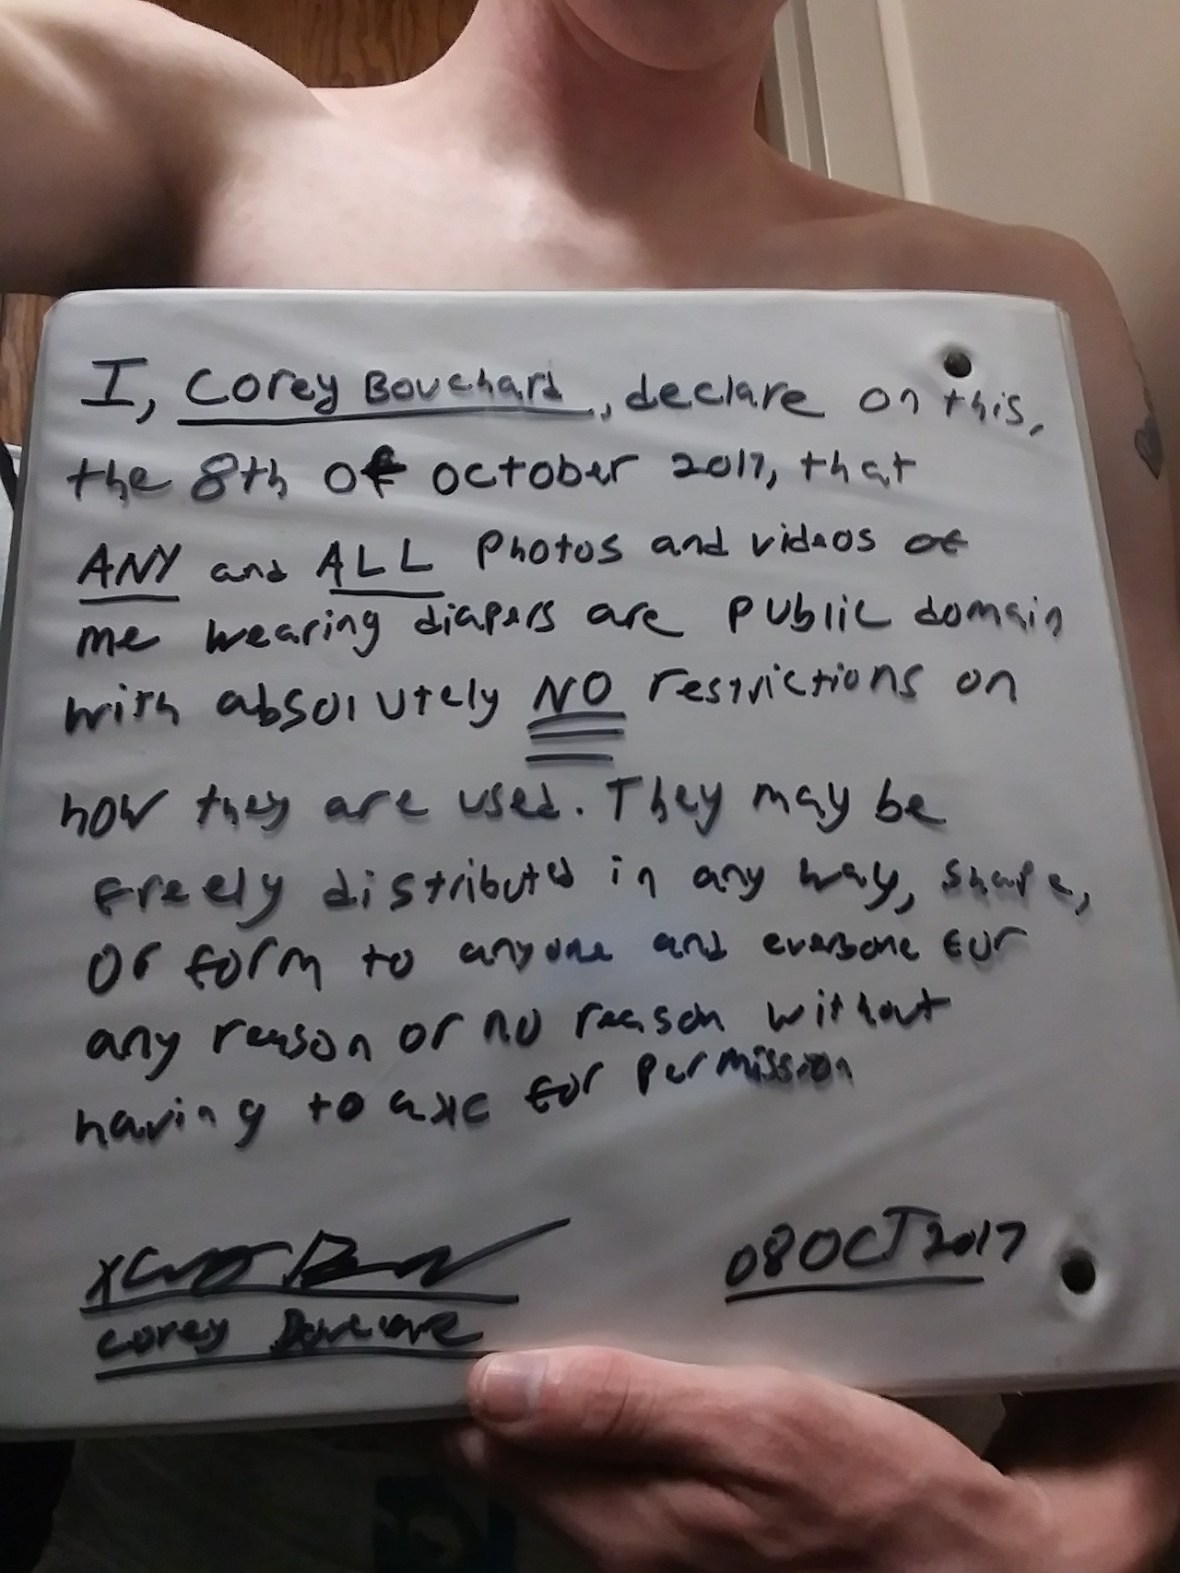 I, Corey Bouchard, declare on this,
the 8th of october 2017, that
ANY and ALL photos and videos of
me wearing diapers are public domain
with absolutely NO restrictions on
how they are used. They may be
freely distributed in any way, shape,
or form to anyone and everyone for
any reason or no reason without
having to axe for permission
08 OCT 2017
corey